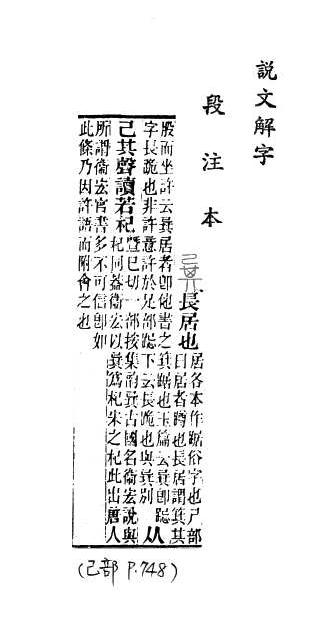 説文解字
段注本
㠱長居也
居各本作踞俗字也尸部
曰居者蹲也長居謂箕其
股而坐許云㠱居者卽他書之箕踞也玉篇云㠱卽𧿇
字長跪也非許意許於足部𧿇下云長跪也與㠱別
从
己其聲讀若杞
曁巳切一部按集韵㠱古國名衞宏說與
杞同葢衞宏以㠱爲杞宋之杞此出唐人
所謂衞宏官書多不可信卽如
此條乃因許語而附會之也
(己部 P.748)